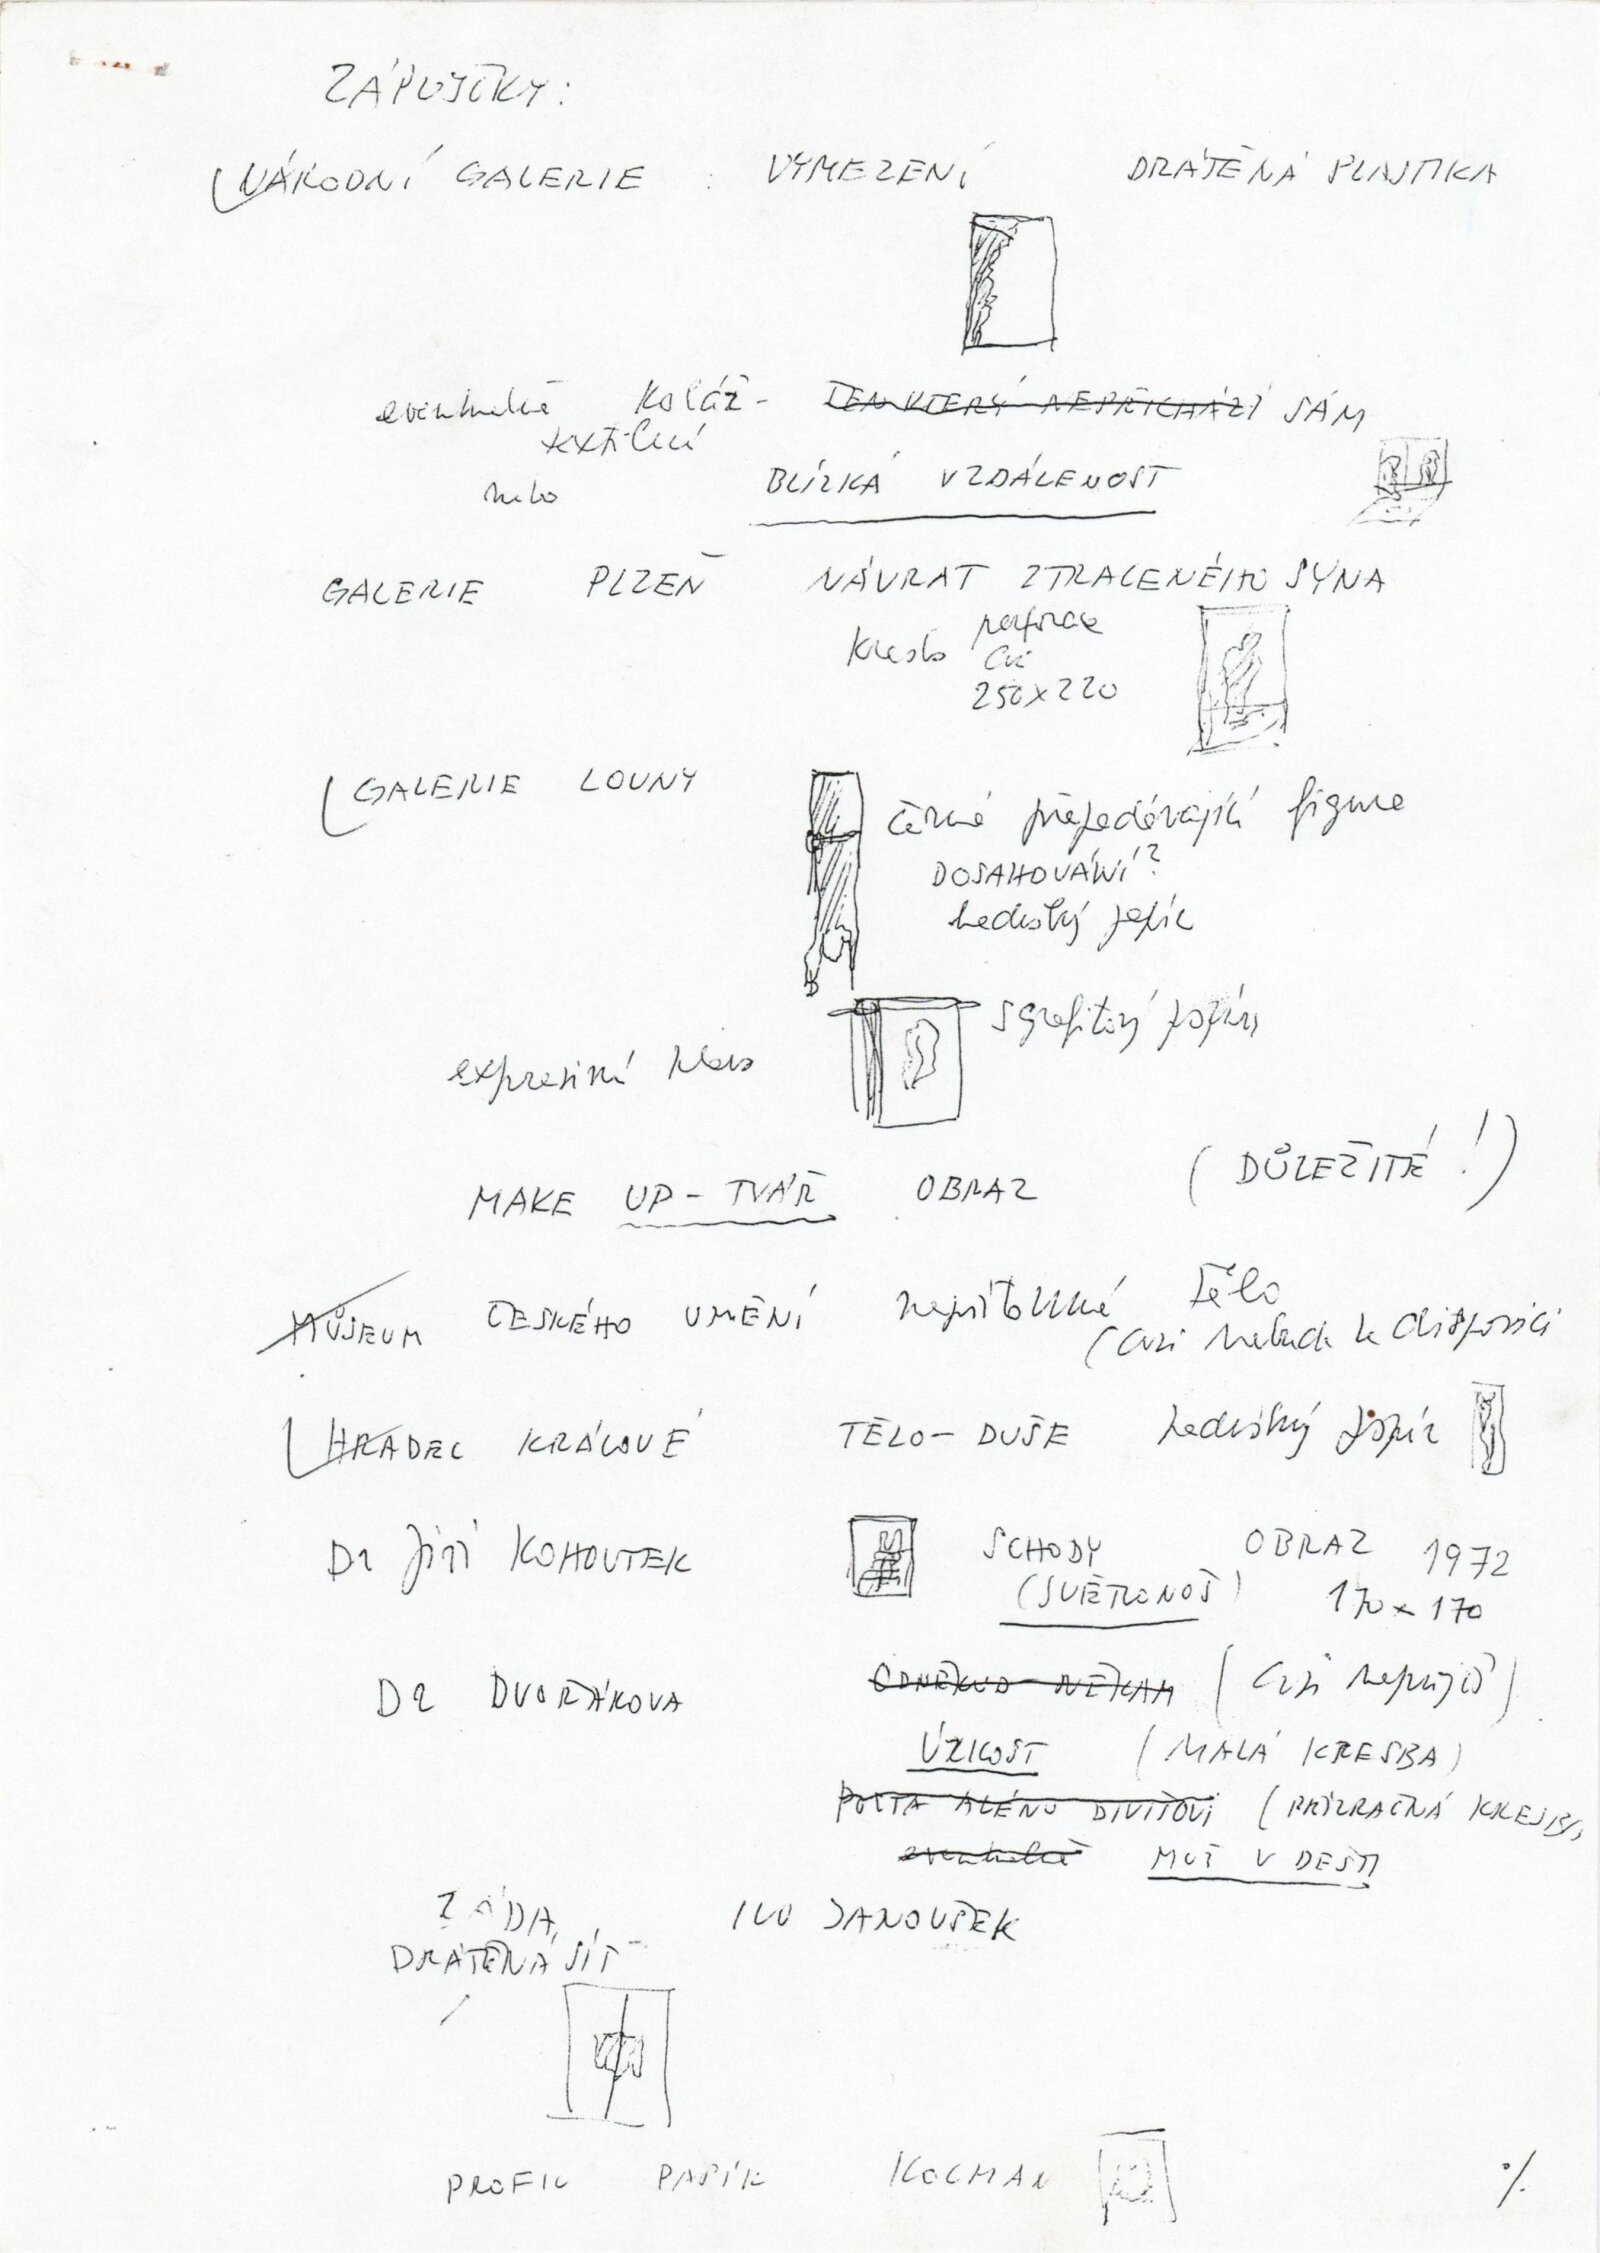 ZÁPŮJČKY:
NÁRODNÍ GALERIE : VYMEZENÍ DRÁTĚNÁ PLASTIKA
eventuelně koláž - TEN KTERÝ NEPŘICHÁZÍ SÁM
textilní
nebo BLÍZKÁ VZDÁLENOST
GALERIE PLZEŇ NÁVRAT ZTRACENÉHO SYNA
perforace
Kresba
250x220
GALERIE LOUNY
černé figura
DOSAHOVÁNÍ?
hedvábný papír
sgrafitový papír
expresivní
MAKE UP - TVÁŘ OBRAZ (DŮLEŽITÉ!)
MŮSEUM ČESKÉHO UMĚNÍ nepřítomné tělo
(asi nebude k disposici
HRADEC KRÁLOVÉ TĚLO - DUŠE hedvábný papír
Dr Jiří KOHOUTEK SCHODY OBRAZ 1972
(SVĚTLONOŠ) 170 x 170
Dr DVOŘÁKOVA ODNĚKUD - NĚKAM (asi nepůjčí)
ÚZKOST (MALÁ KRESBA)
POCTA ALÉNU DIVIŠOVI (PŘÍZRAČNÁ KRESBA)
eventuelně MUŽ V DEŠTI
ZÁDA, IVO JANOUŠEK
DRÁTĚNÁ SÍŤ
PROFIL PAPÍR KOCMAN
%